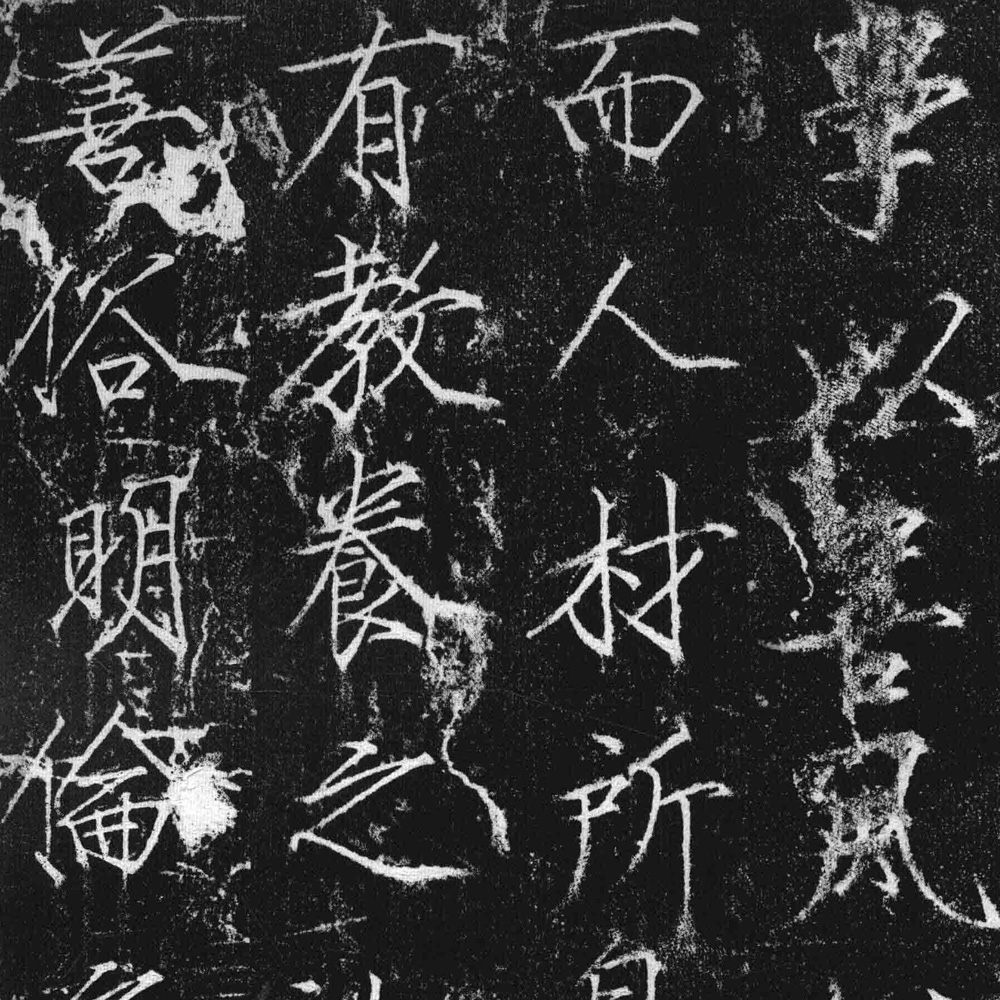 學以善風
而人材所
有教養之
善俗明倫